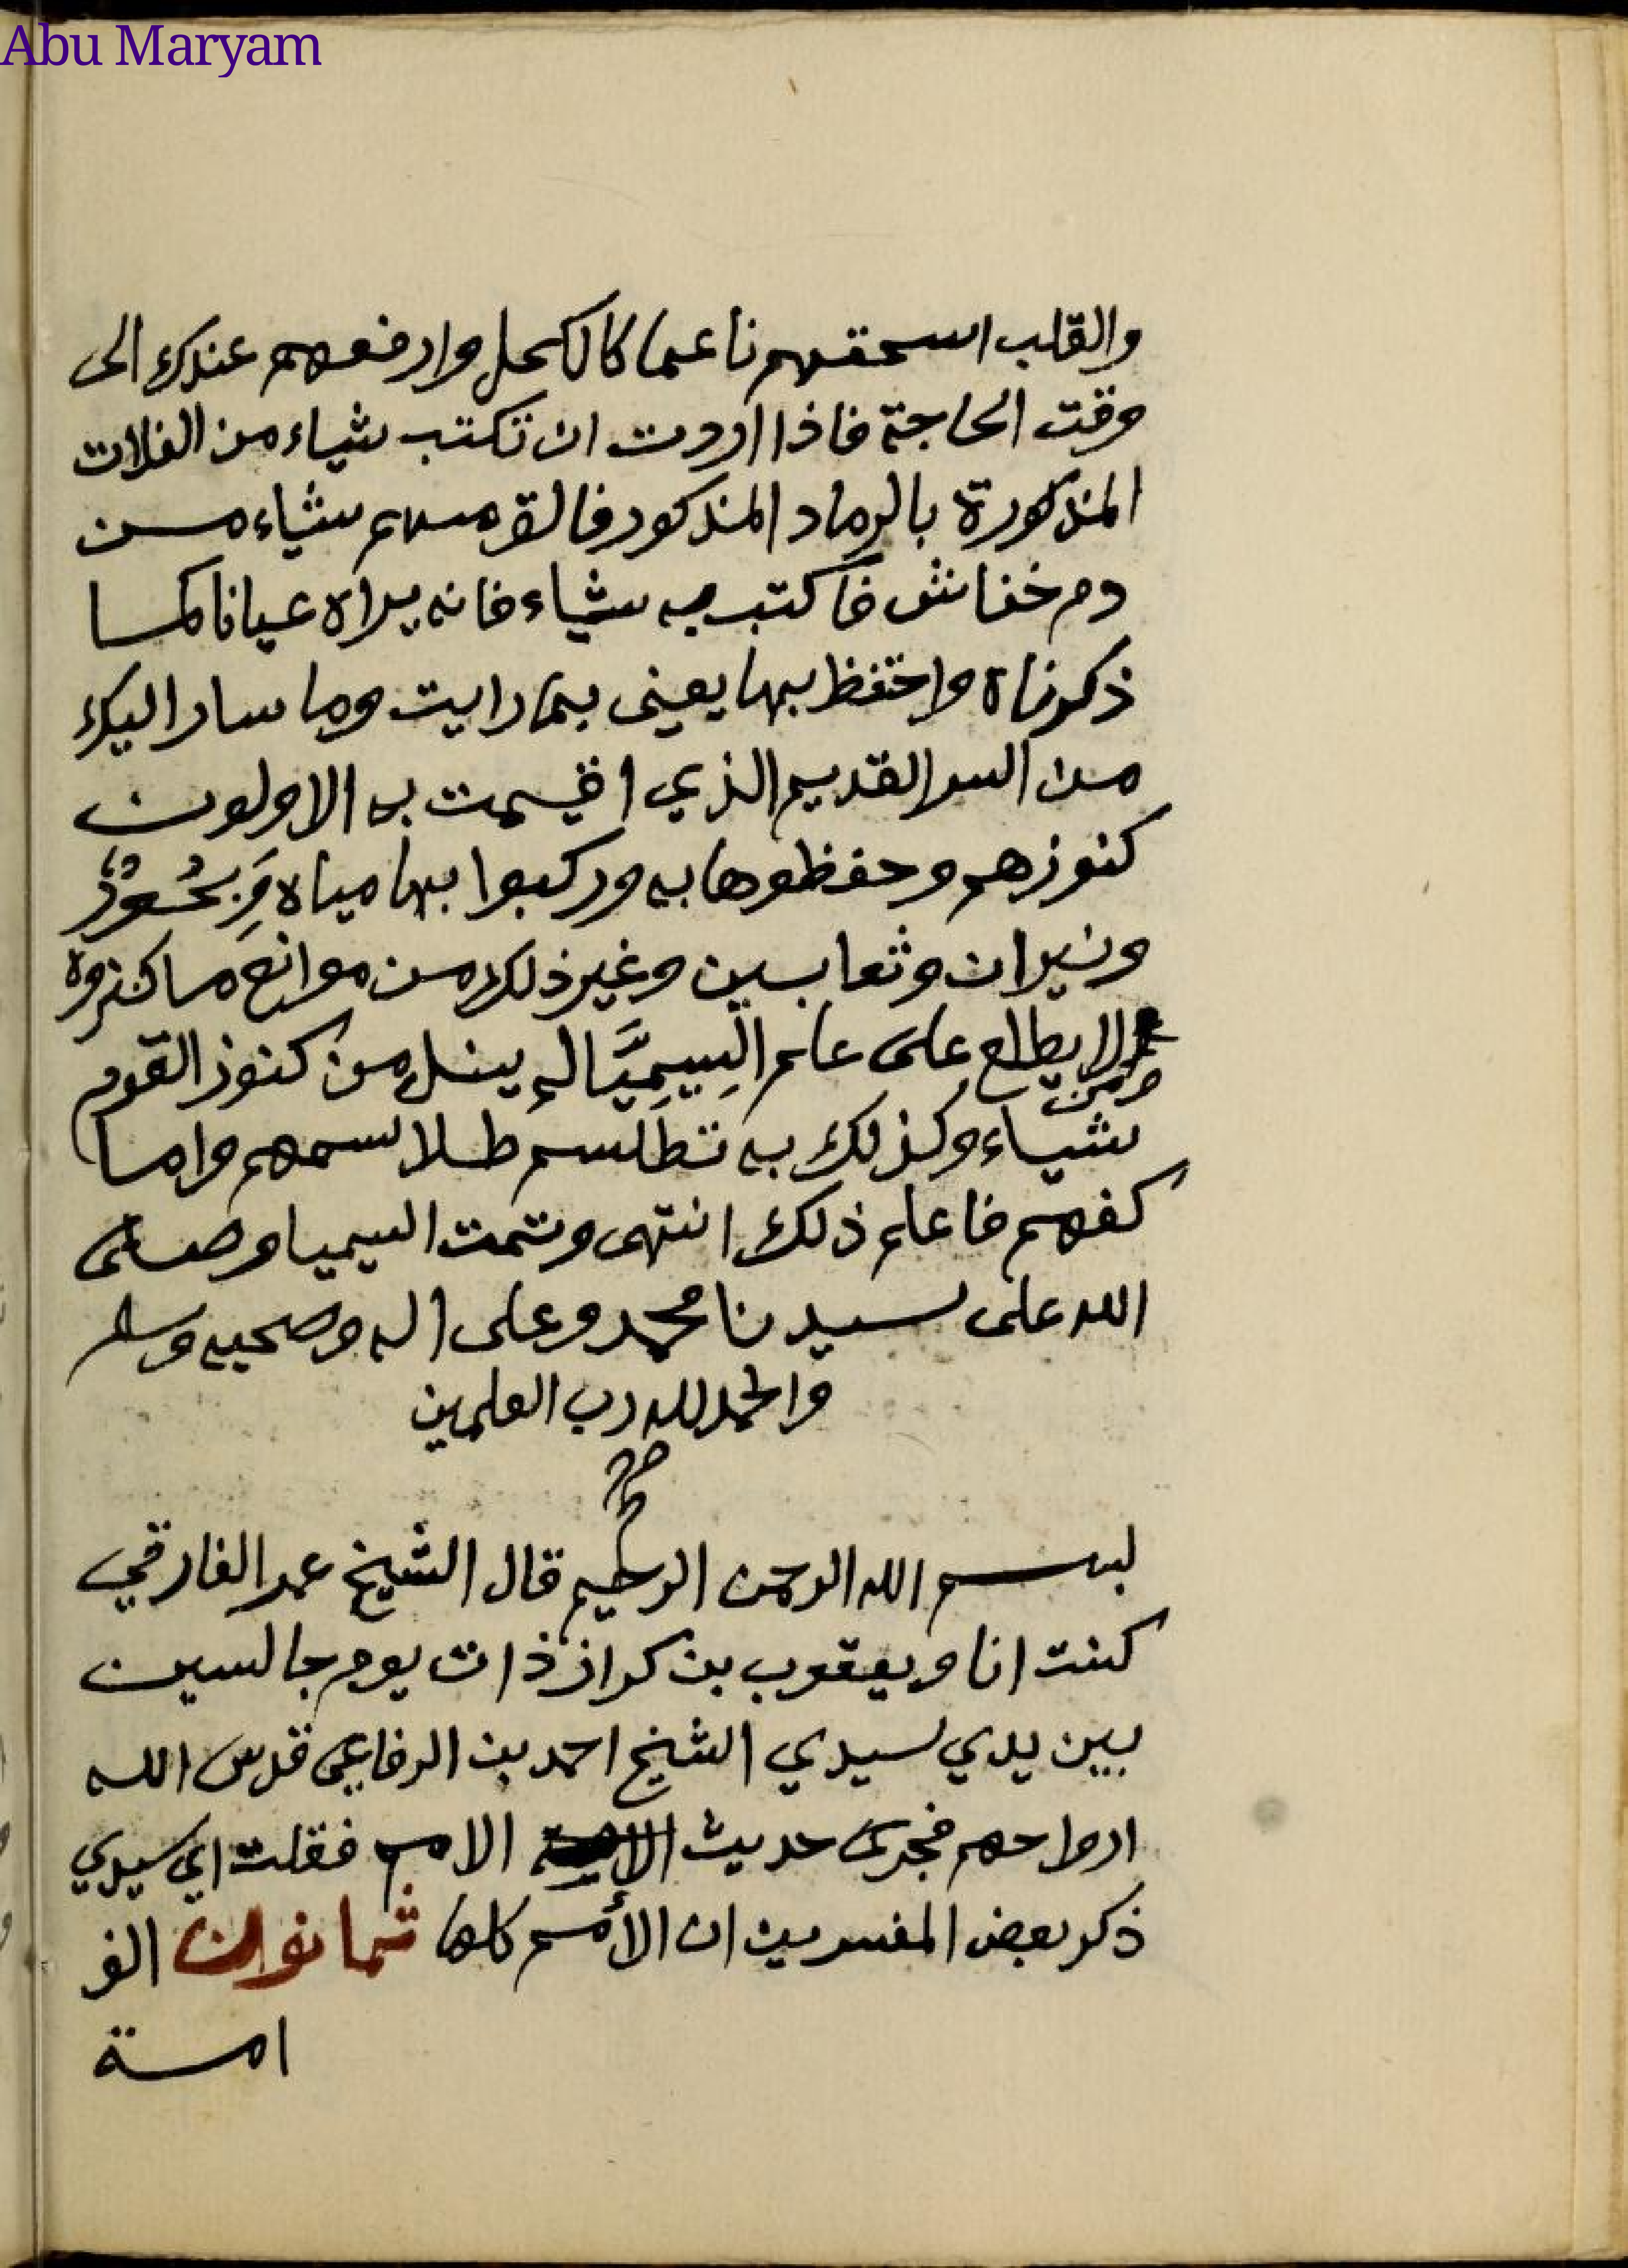 Abu Maryam
والقلب اسحقهم ناعما كالكحل وارفعهم عندك الى
وقت الحاجة فاذا اردت ان تكتب شياء من الفلات
المذكورة بالرماد المذكور فالق منهم شياء من
دم خفاش فاكتب به شياء فانه يراه عيانا كما
ذكرناه واحتفظ بها يعنى بما رايت وما سار اليك
من السر القديم الذي اقسمت به الاولون
كنوزهم وحفظوها به وركبوا بها مياه وَبُحُورٌ
ونيران وثعابين وغير ذلك من موانع ما كنزوه
ومن لا يطلع على علم السِيمِيَّا لم ينل من كنوز القوم
شياء وكذلك به تطلسم طلاسمهم واما
كفهم فاعلم ذلك انتهى وتمت السيميا وصلى
الله على سيدنا محمد وعلى اله وصحبه وسلم
والحمد لله رب العلمين
بسم الله الرحمن الرحيم قال الشيخ عمر الفارقي
كنت انا ويعقوب بن كراز ذات يوم جالسين
بين يدي سيدي الشيخ احمد بن الرفاعى قدس الله
ارواحهم فجرى حديث الامم فقلت اي سيدي
ذكر بعض المفسرين ان الأمم كلها ثمانون الف
امة